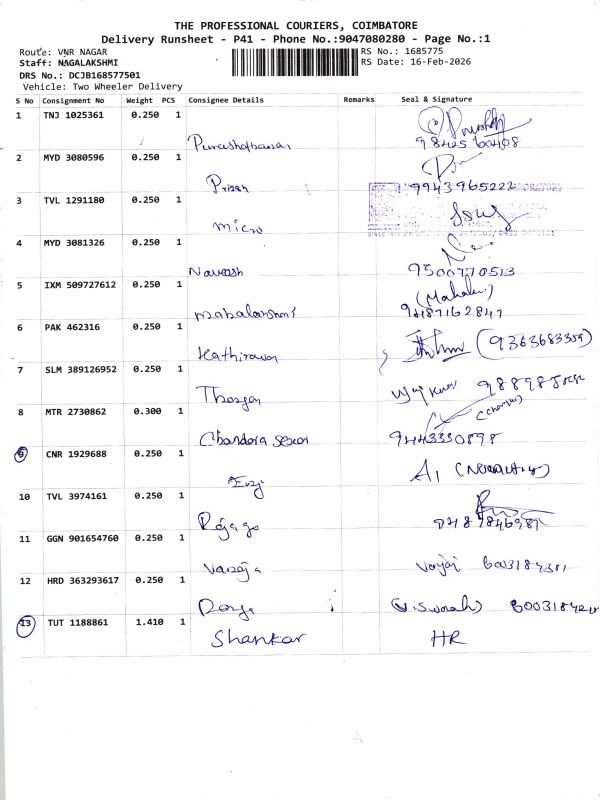 THE PROFESSIONAL COURIERS, COIMBATORE
Delivery Runsheet - P41 - Phone No.:9047080280 - Page No.:1
Route: VNR NAGAR RS No.: 1685775
Staff: NAGALAKSHMI RS Date: 16-Feb-2026
DRS No.: DCJB168577501
Vehicle: Two Wheeler Delivery
S No Consignment No Weight PCS Consignee Details Remarks Seal & Signature
1 TNJ 1025361 0.250 1
Purushothaman 98425 60408
2 MYD 3080596 0.250 1
9943965222
3 TVL 1291180 0.250 1
micro
4 MYD 3081326 0.250 1
Naveesh 9500770513
5 IXM 509727612 0.250 1
(Mahalu)
mahalakshmi 9487162847
6 PAK 462316 0.250 1
Kathiravan (9363683359)
7 SLM 389126952 0.250 1
8 MTR 2730862 0.300 1
Chandora 9443330898
9 CNR 1929688 0.250 1
10 TVL 3974161 0.250 1
11 GGN 901654760 0.250 1
Vanaja
12 HRD 363293617 0.250 1
13 TUT 1188861 1.410 1
Shankar HR